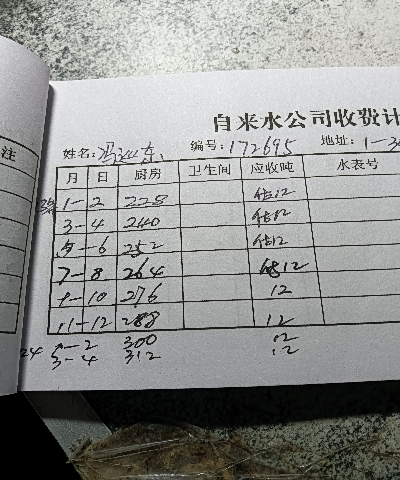 自来水公司收费计
姓名: 冯 东 编号: 172695 地址: 1-3
注
月 日 厨房 卫生间 应收吨 水表号
1-2 228 估12
3-4 240 估12
5-6 252 估12
7-8 264 估12
9-10 276 12
11-12 288 12
24 1-2 300 12
3-4 312 12